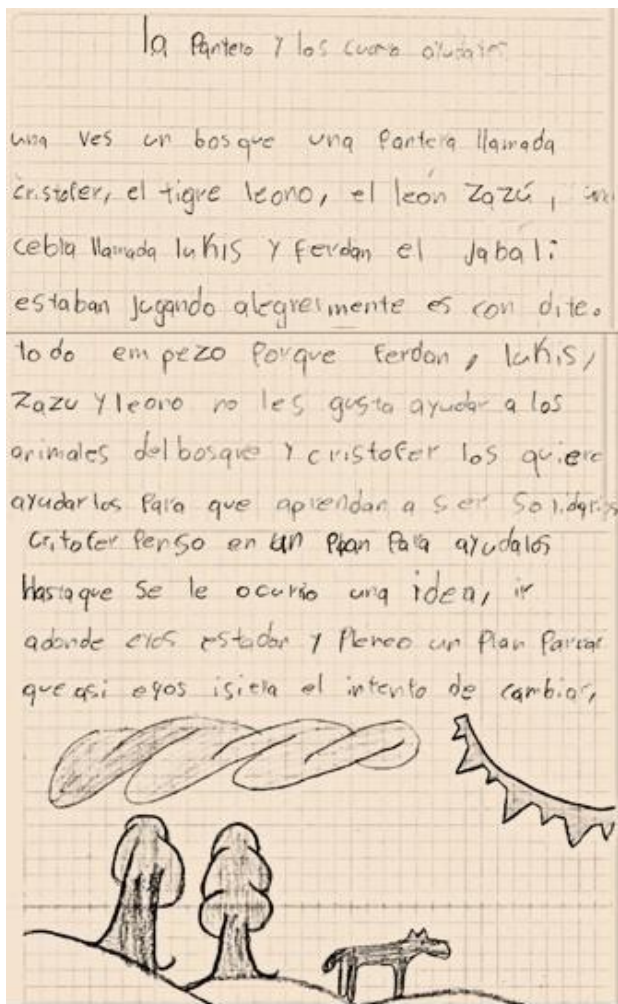 la Pantera y los cuatro
una ves un bosque una Pantera llamada
cristofer, el tigre leono, el león Zazú,
cebla llamada lukis y ferdan el Jabali
estaban jugando alegrermente es con dite.
todo empezo Porque ferdan, lukis,
Zazu y leono no les gusta ayudar a los
animales del bosque y cristofer los quiere
ayudarlos Para que aprendan a ser Solidarios
critofer Penso en un Plan Para ayudalos
Hasta que se le ocurrio una idea, ir
adonde estadan y un Plan
que asi egos isiera el intento de cambiar,